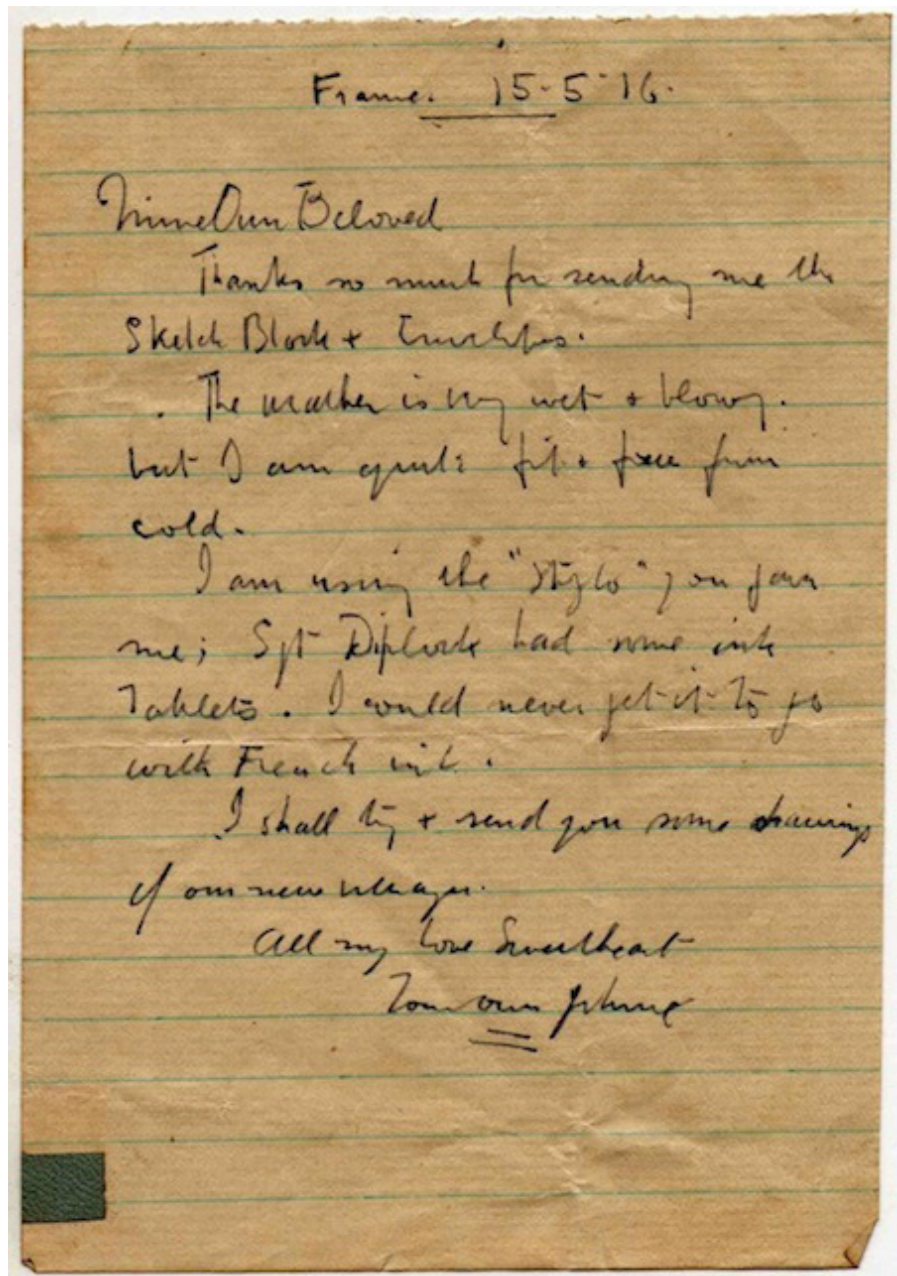 France. 15-5-16.
Mine Own Beloved
Thanks so much for sending me the
Sketch Block + Envelopes.
. The weather is very wet + blowy.
but I am quite fit + free from
cold.
I am using the "Stylo" you gave
me; Sgt Diplock had some ink
Tablets. I could never get it to go
with French ink.
I shall try + send you some drawings
of our new villages.
All my love Sweetheart
Your own